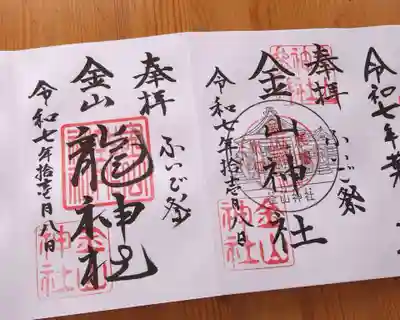 令和七年
奉拝
ふいご祭
金山神社
令和七年拾壱月八日
金山神社
金山神社
奉拝
ふいご祭
金山
龍神社
令和七年拾壱月八日
金山神社